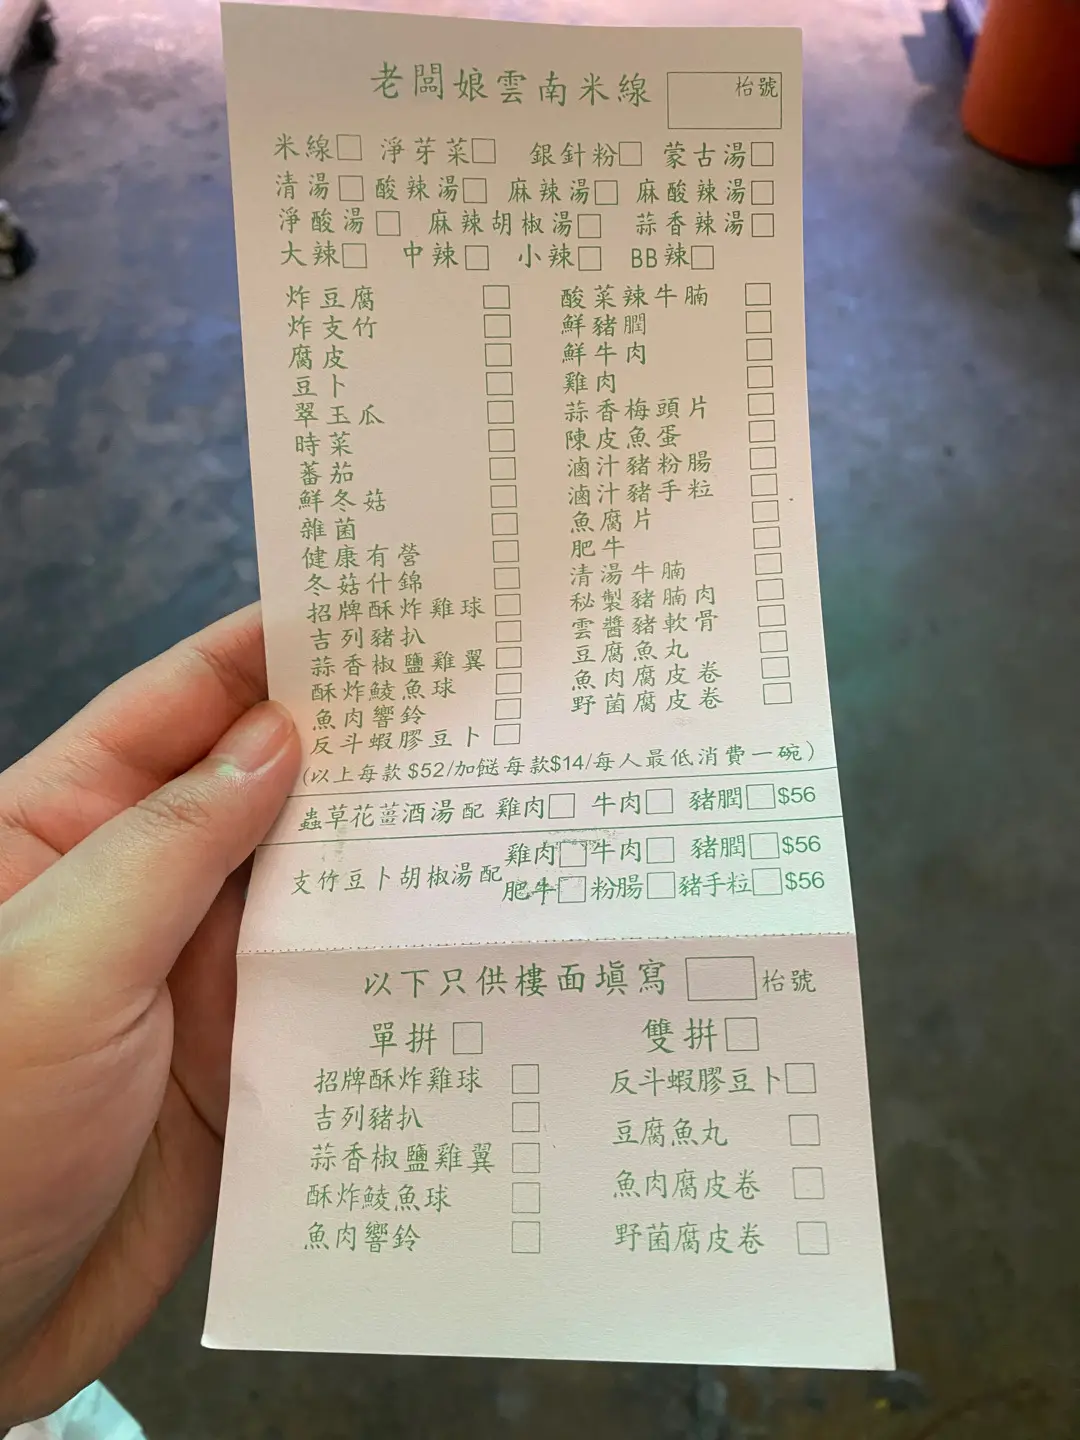 老闆娘雲南米線
枱號
米線□ 淨芽菜□ 銀針粉□ 蒙古湯□
清湯□ 酸辣湯□ 麻辣湯□ 麻酸辣湯□
淨酸湯□ 麻辣胡椒湯□ 蒜香辣湯□
大辣□ 中辣□ 小辣□ BB辣□
炸豆腐□
炸支竹□
腐皮□
豆卜□
翠玉瓜□
時菜□
蕃茄□
鮮冬菇□
雜菌□
健康有營□
冬菇什錦□
招牌酥炸雞球□
吉列豬扒□
蒜香椒鹽雞翼□
酥炸鯪魚球□
魚肉響鈴□
反斗蝦膠豆卜□
酸菜辣牛腩□
鮮豬膶□
鮮牛肉□
雞肉□
蒜香梅頭片□
陳皮魚蛋□
滷汁豬粉腸□
滷汁豬手粒□
魚腐片□
肥牛□
清湯牛腩□
秘製豬腩肉□
雲醬豬軟骨□
豆腐魚丸□
魚肉腐皮卷□
野菌腐皮卷□
(以上每款$52/加餸每款$14/每人最低消費一碗)
蟲草花薑酒湯配 雞肉□ 牛肉□ 豬膶□$56
支竹豆卜胡椒湯配
雞肉□牛肉□ 豬膶□$56
肥牛□粉腸□豬手粒□$56
以下只供樓面填寫 □枱號
單拼□
招牌酥炸雞球□
吉列豬扒□
蒜香椒鹽雞翼□
酥炸鯪魚球□
魚肉響鈴□
雙拼□
反斗蝦膠豆卜□
豆腐魚丸□
魚肉腐皮卷□
野菌腐皮卷□